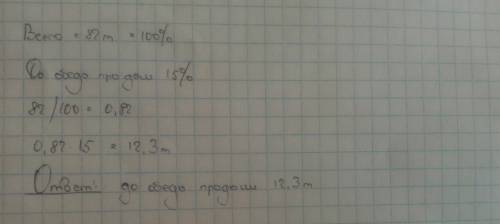 Всего = 82т = 100%
До обеда продали 15%
82/100 = 0,82
0,82·15 = 12,3т
Ответ: до обеда продали 12,3т